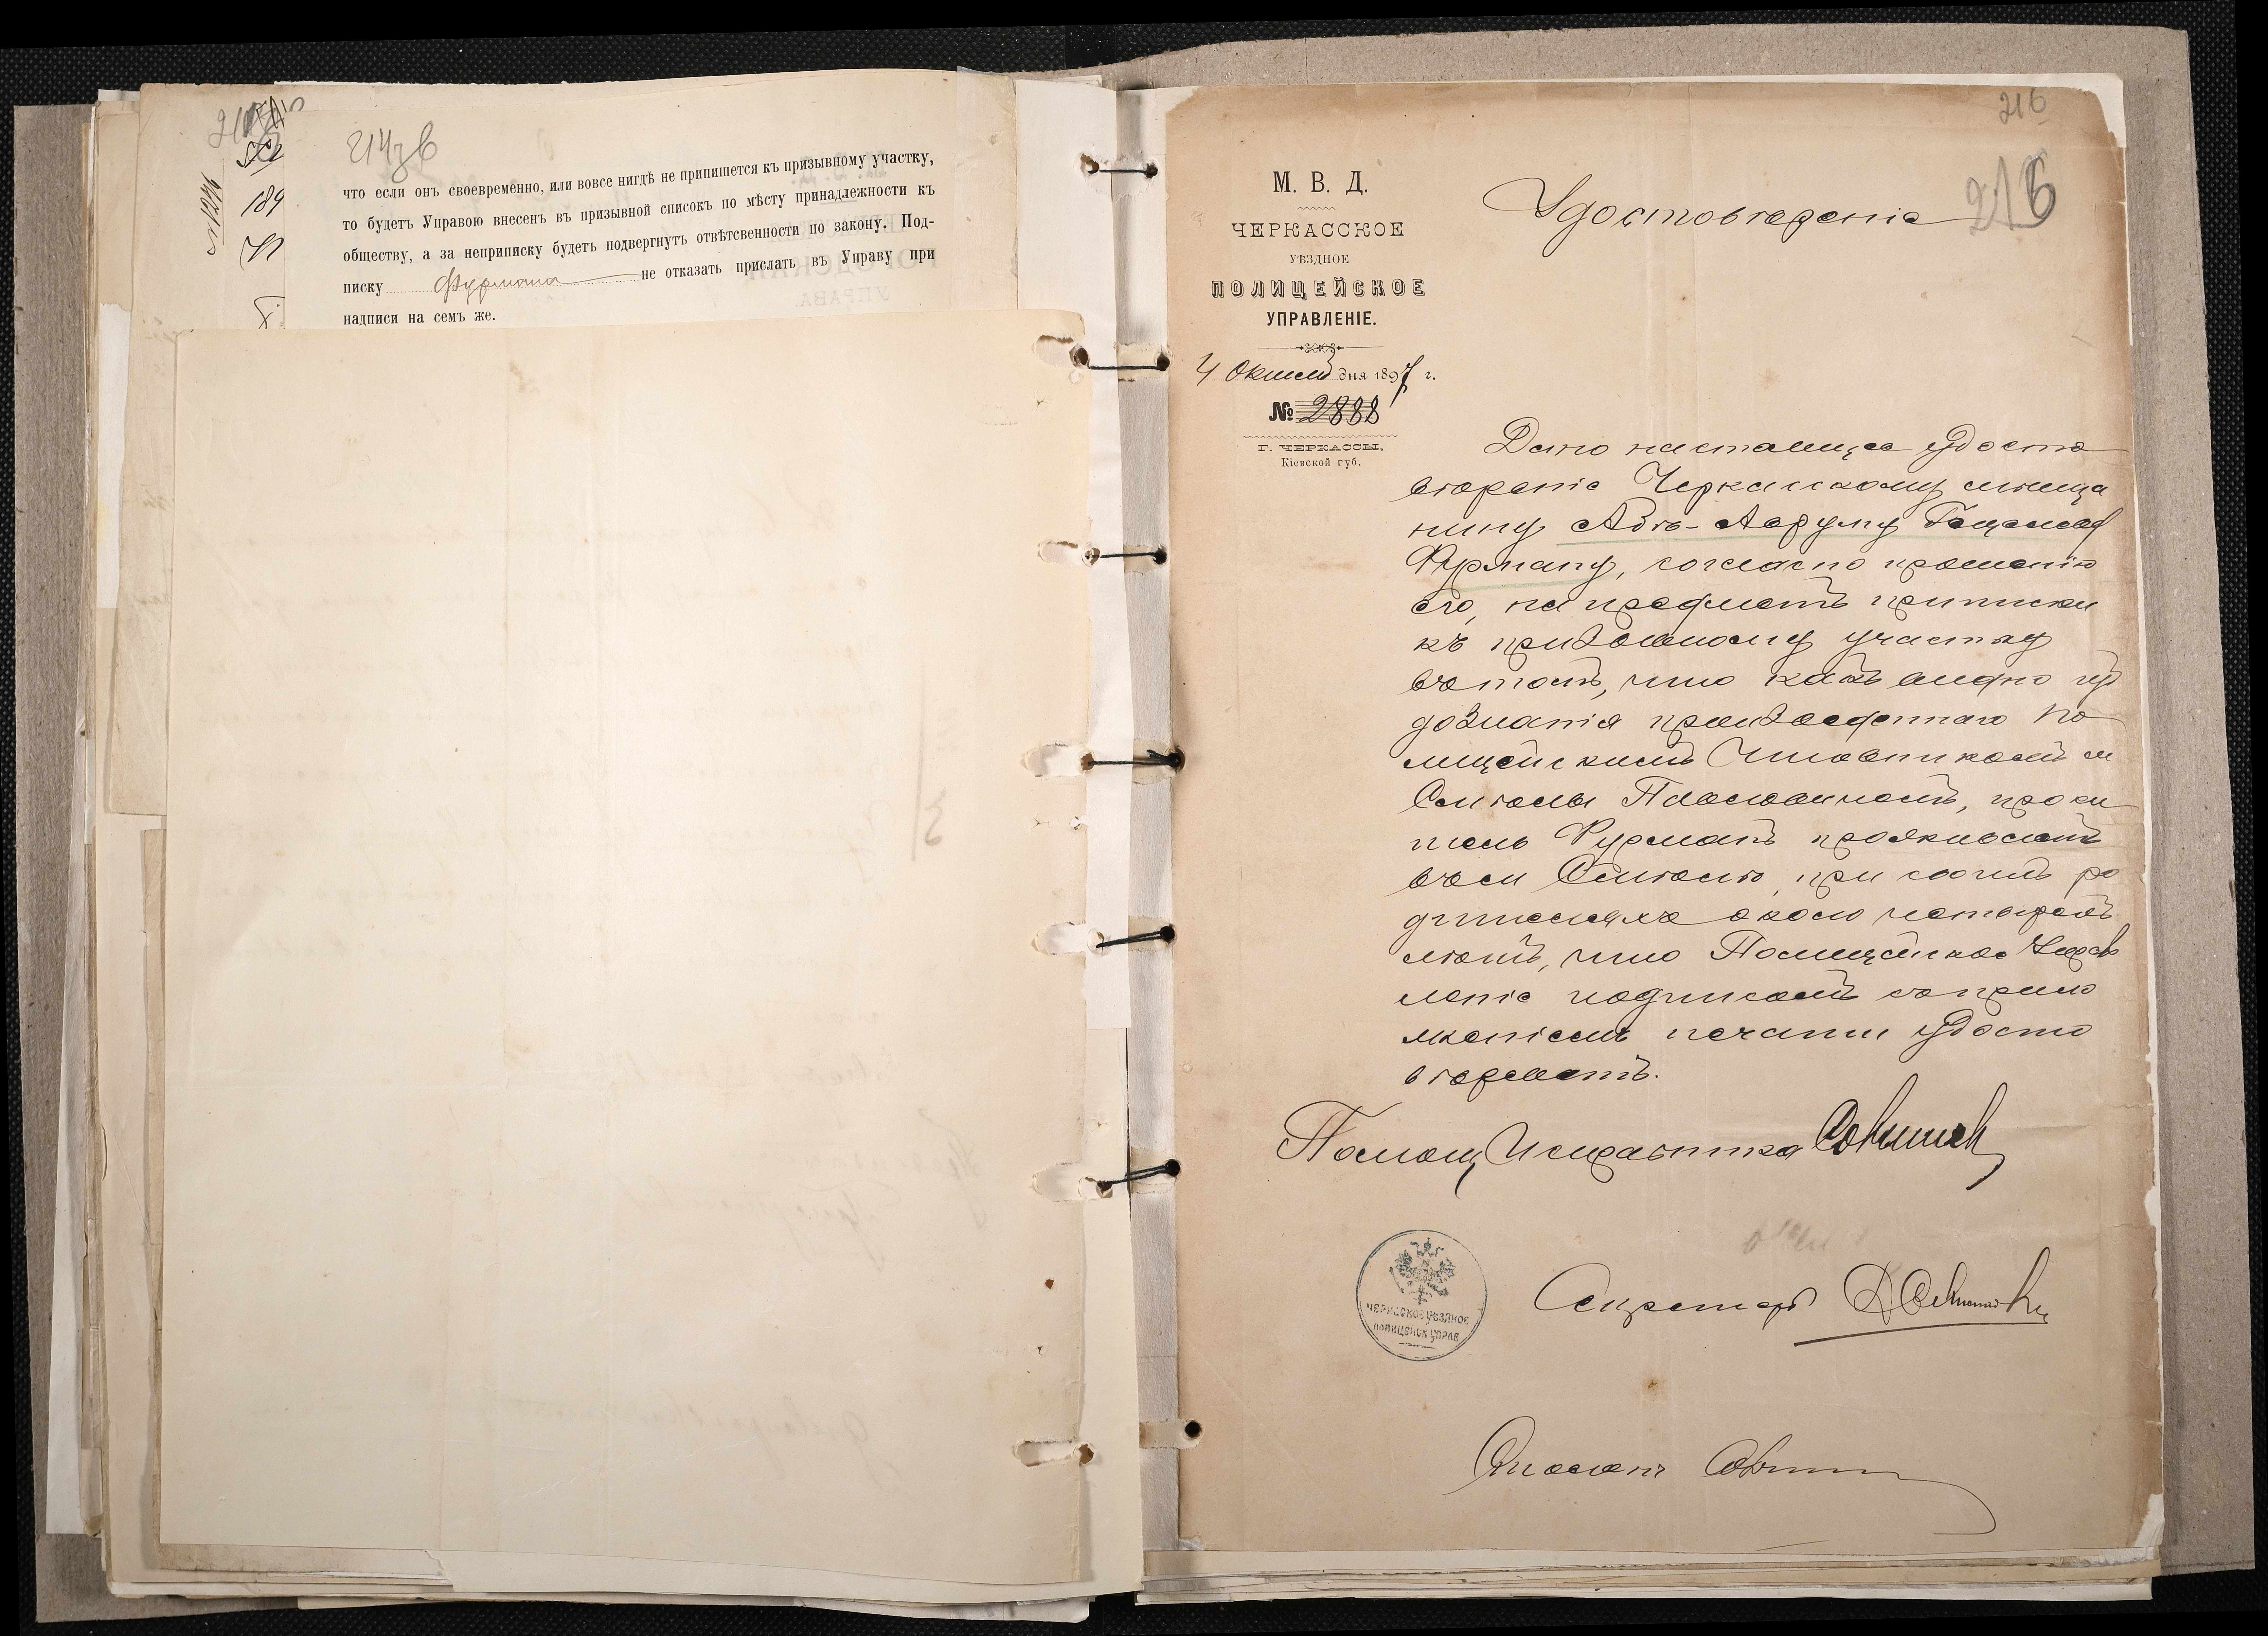 214 зв
что если онъ своевременно, или вовсе нигдѣ не припишется къ призывному участку,
то будетъ Управою внесенъ въ призывной списокъ по мѣсту принадлежности къ
обществу, а за неприписку будетъ подвергнутъ отвѣтсвенности по закону. Под-
писку Фурмана не отказать прислать въ Управу при
надписи на семъ же.
189
216
216
М. В. Д.
ЧЕРКАССКОЕ
УѢЗДНОЕ
ПОЛИЦЕЙСКОЕ
УПРАВЛЕНІЕ.
4 Октяб дня 1897 г.
№ 2888
Г. ЧЕРКАССЫ,
Кіевской губ.
Удостовѣреніе
Дано настоящее удосто
вѣреніе Черкасскому мѣща
нину Абъ-Аарону
Фурману, согласно прошенію
его, на предметъ приписки
къ призывному участку
въ томъ, что какъ видно изъ
дознанія произведеннаго По
лицейскимъ Чиновникомъ м
Смѣлы Павловичемъ, проси
тель Фурманъ проживаетъ
въ м Смѣлѣ, при своихъ ро
дителяхъ около четырехъ
лѣтъ, что Полицейское Управ
леніе подписомъ съ прило
женіемъ печати удосто
вѣряетъ.
Помощ Исправника
ЧЕРКАСКОЕ УѢЗДНОЕ
ПОЛИЦЕЙСК УПРАВ
Секретарь